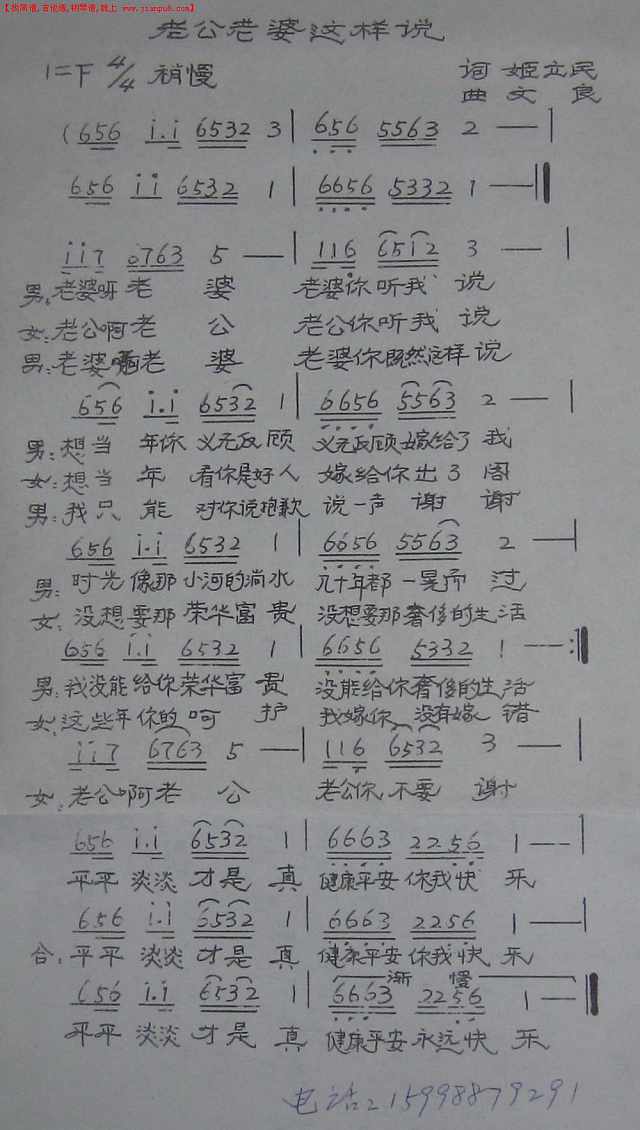 【找简谱,吉他谱,钢琴谱,就上 www.jianpu8.com】
老公老婆这样说
1=下 4/4 稍慢 词 姬立民
曲 文良
(656 i.i 6532 3 | 656 5563 2 — |
656 ii 6532 1 | 6656 5332 1 — ‖
ii7 0763 5 — | 116 6512 3 — |
男:老婆呀老婆 老婆你听我说
女:老公啊老公 老公你听我说
男:老婆啊老婆 老婆你既然这样说
656 i.i 6532 1 | 6656 5563 2 — |
男:想当年你义无反顾 义无反顾嫁给了我
女:想当年看你是好人 嫁给你出了阁
男:我只能对你说抱歉 说一声谢谢
656 i.i 6532 1 | 6656 5563 2 — |
男:时光像那小河的淌水 几十年都一晃而过
女:没想要那荣华富贵 没想要那奢侈的生活
656 i.i 6532 1 | 6656 5332 1 — :‖
男:我没能给你荣华富贵 没能给你奢侈的生活
女:这些年你的呵护 我嫁你没有嫁错
ii7 6763 5 — | 116 6532 3 — |
女:老公啊老公 老公你不要谢
656 i.i 6532 1 | 6663 2256 1 — |
平平淡淡才是真 健康平安你我快乐
656 i.i 6532 1 | 6663 2256 1 — |
合:平平淡淡才是真 健康平安你我快乐
渐慢
656 i.i 6532 1 | 6663 2256 1 — ‖
平平淡淡才是真 健康平安永远快乐
电话:15998879291